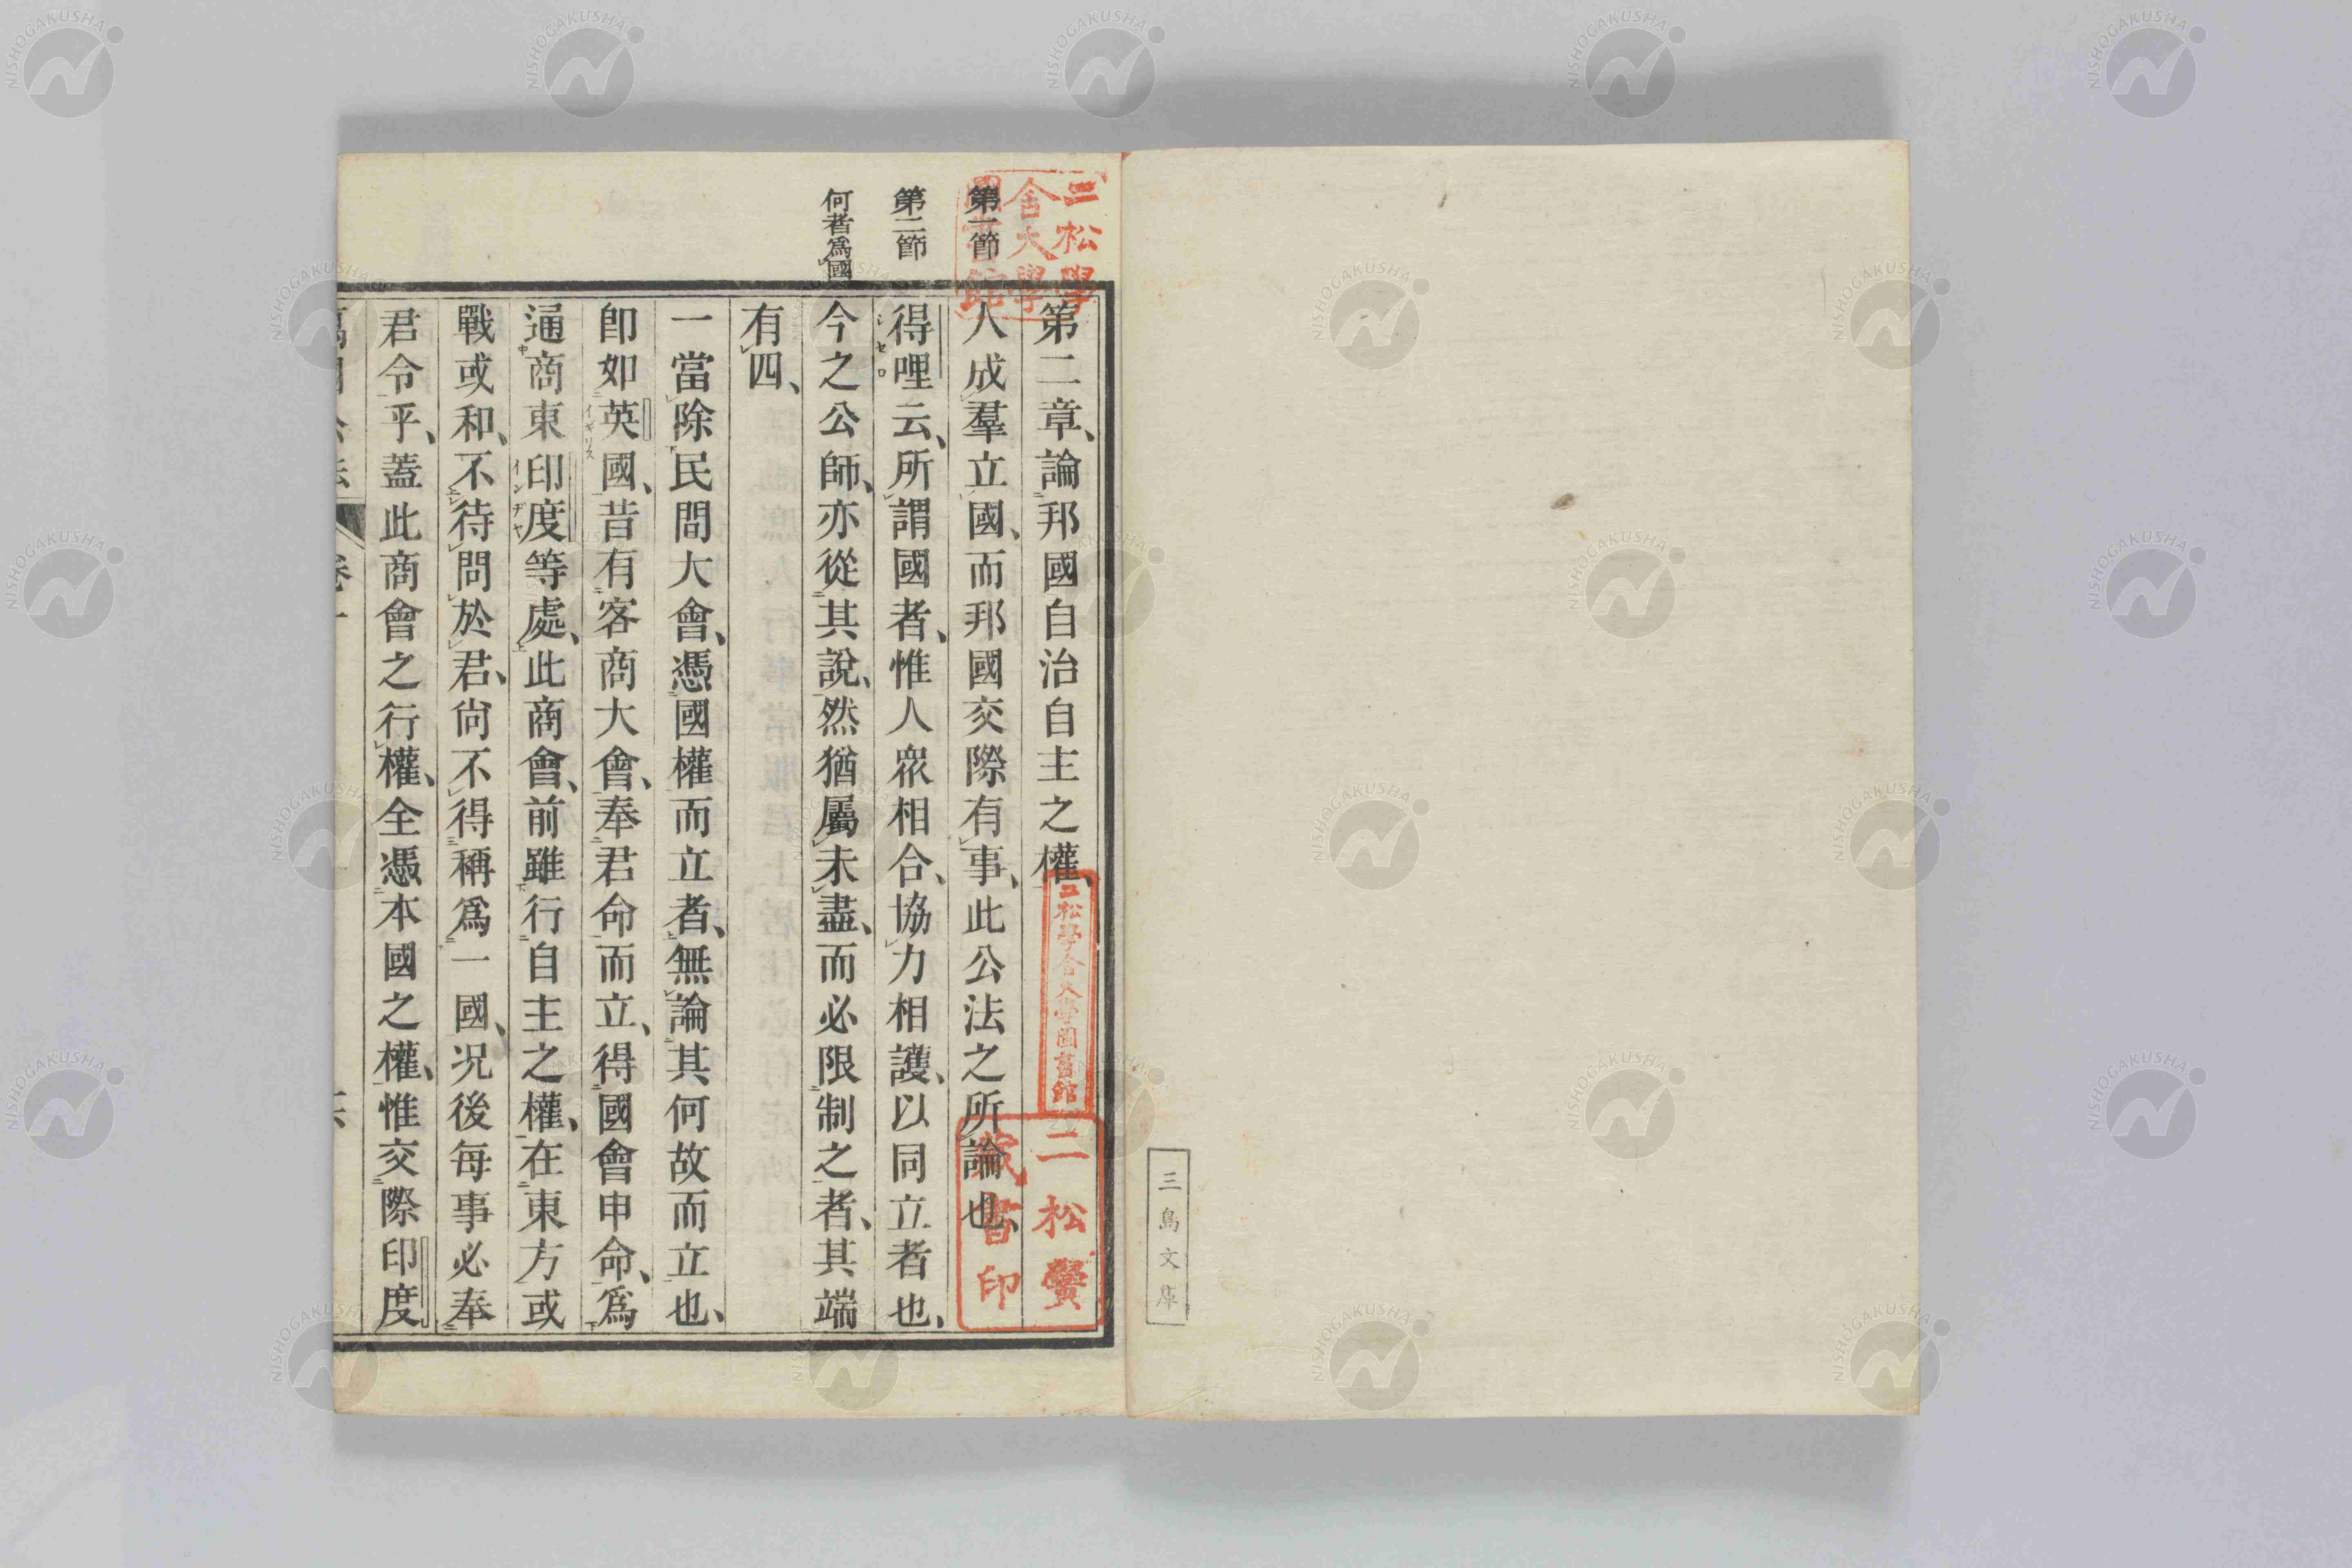 三島文庫
二松學
舍大學
圖書館
二松學舍大學圖書館
二松黌
藏書印
第二章、論邦國自治自主之權、
第一節
人成羣立國、而邦國交際有事、此公法之所論也、
第二節
得哩云、所謂國者、惟人衆相合、協力相護、以同立者也、
シセロ
何者爲國
今之公師、亦從其說、然猶屬未盡、而必限制之者、其端
有四、
一當除民間大會、憑國權而立者、無論其何故而立也、
卽如英國、昔有客商大會、奉君命而立、得國會申命、爲
イギリス
通商東印度等處、此商會、前雖行自主之權、在東方或
インヂヤ
戰或和、不待問於君、尙不得稱爲一國、况後每事必奉
君令乎、蓋此商會之行權、全憑本國之權、惟交際印度
萬國公法 卷一
NISHOGAKUSHA